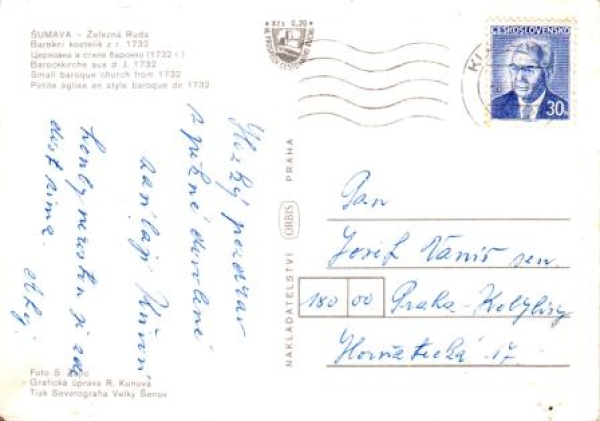 ŠUMAVA – Železná Ruda
Barokní kostelík z r. 1732
Церковка в стиле барокко (1732 г.)
Barockkirche aus d. J. 1732
Small baroque church from 1732
Petite église en style baroque de 1732
Kčs 0,20
ČESKOSLOVENSKO
30h
Hezký pozdrav
z pěkné dovolené
zasílají
houby nerostou je zde
dost zima.
Ahoj
NAKLADATELSTVÍ ORBIS PRAHA
Pan
Josef Vaniš sen.
180 00 Praha-Kobylisy
Horňátecká 17
Foto S.
Grafická úprava R. Kunová
Tisk Severografia Velký Šenov